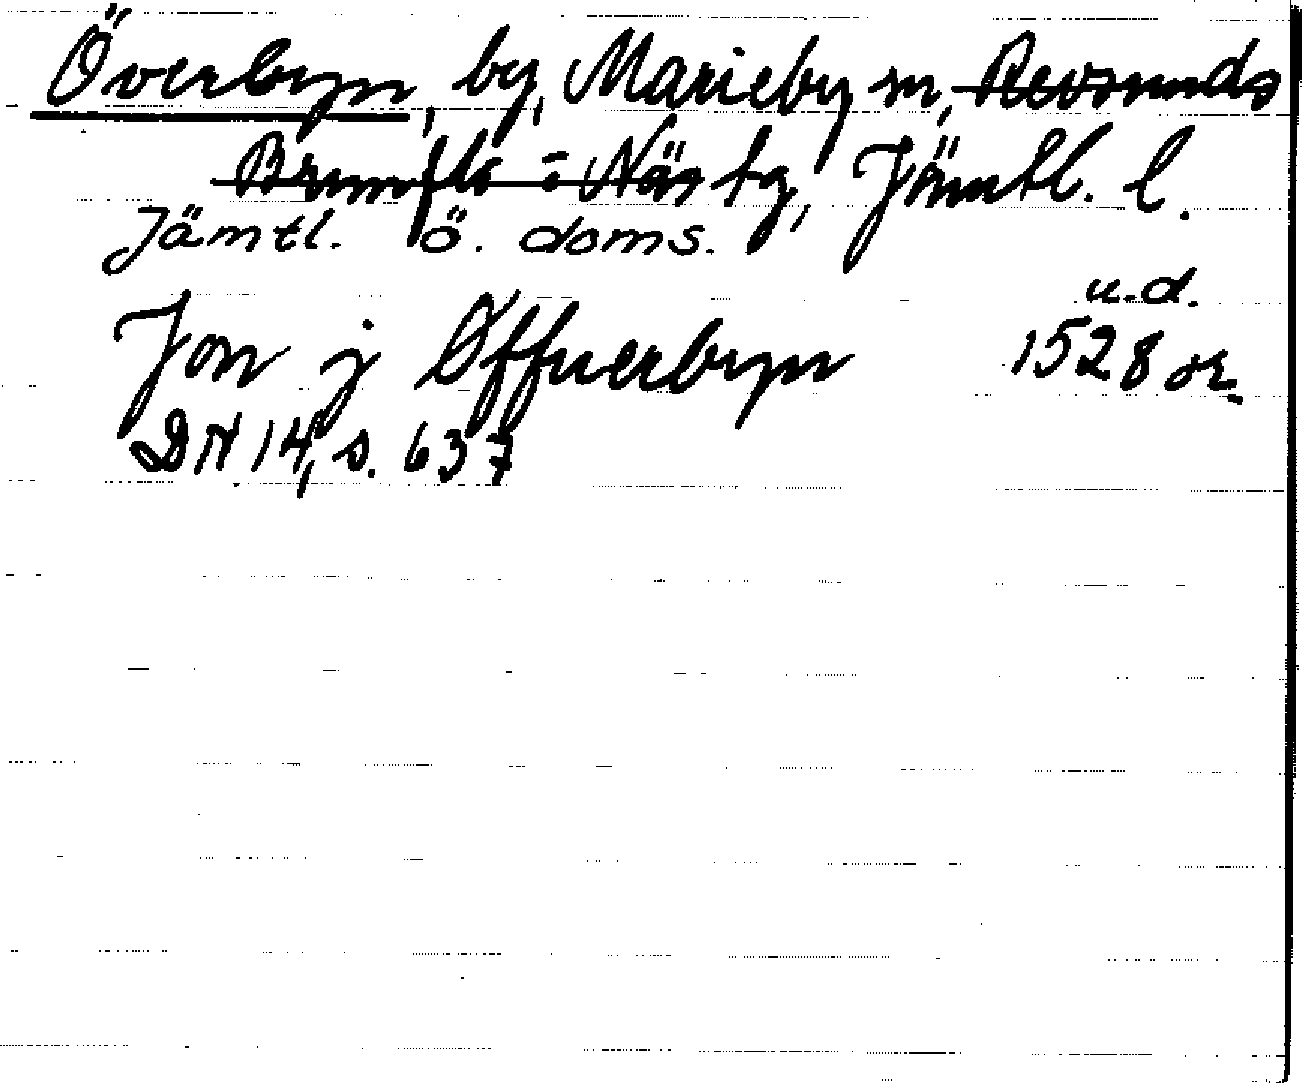 Överbyn, by, Marieby sn, Revsunds
Brunflo o Näs tg, Jämtl. l.
Jämtl. ö. doms.
u.d.
Jon j Øffuerbyn 1528 or.
DN 14, s. 637